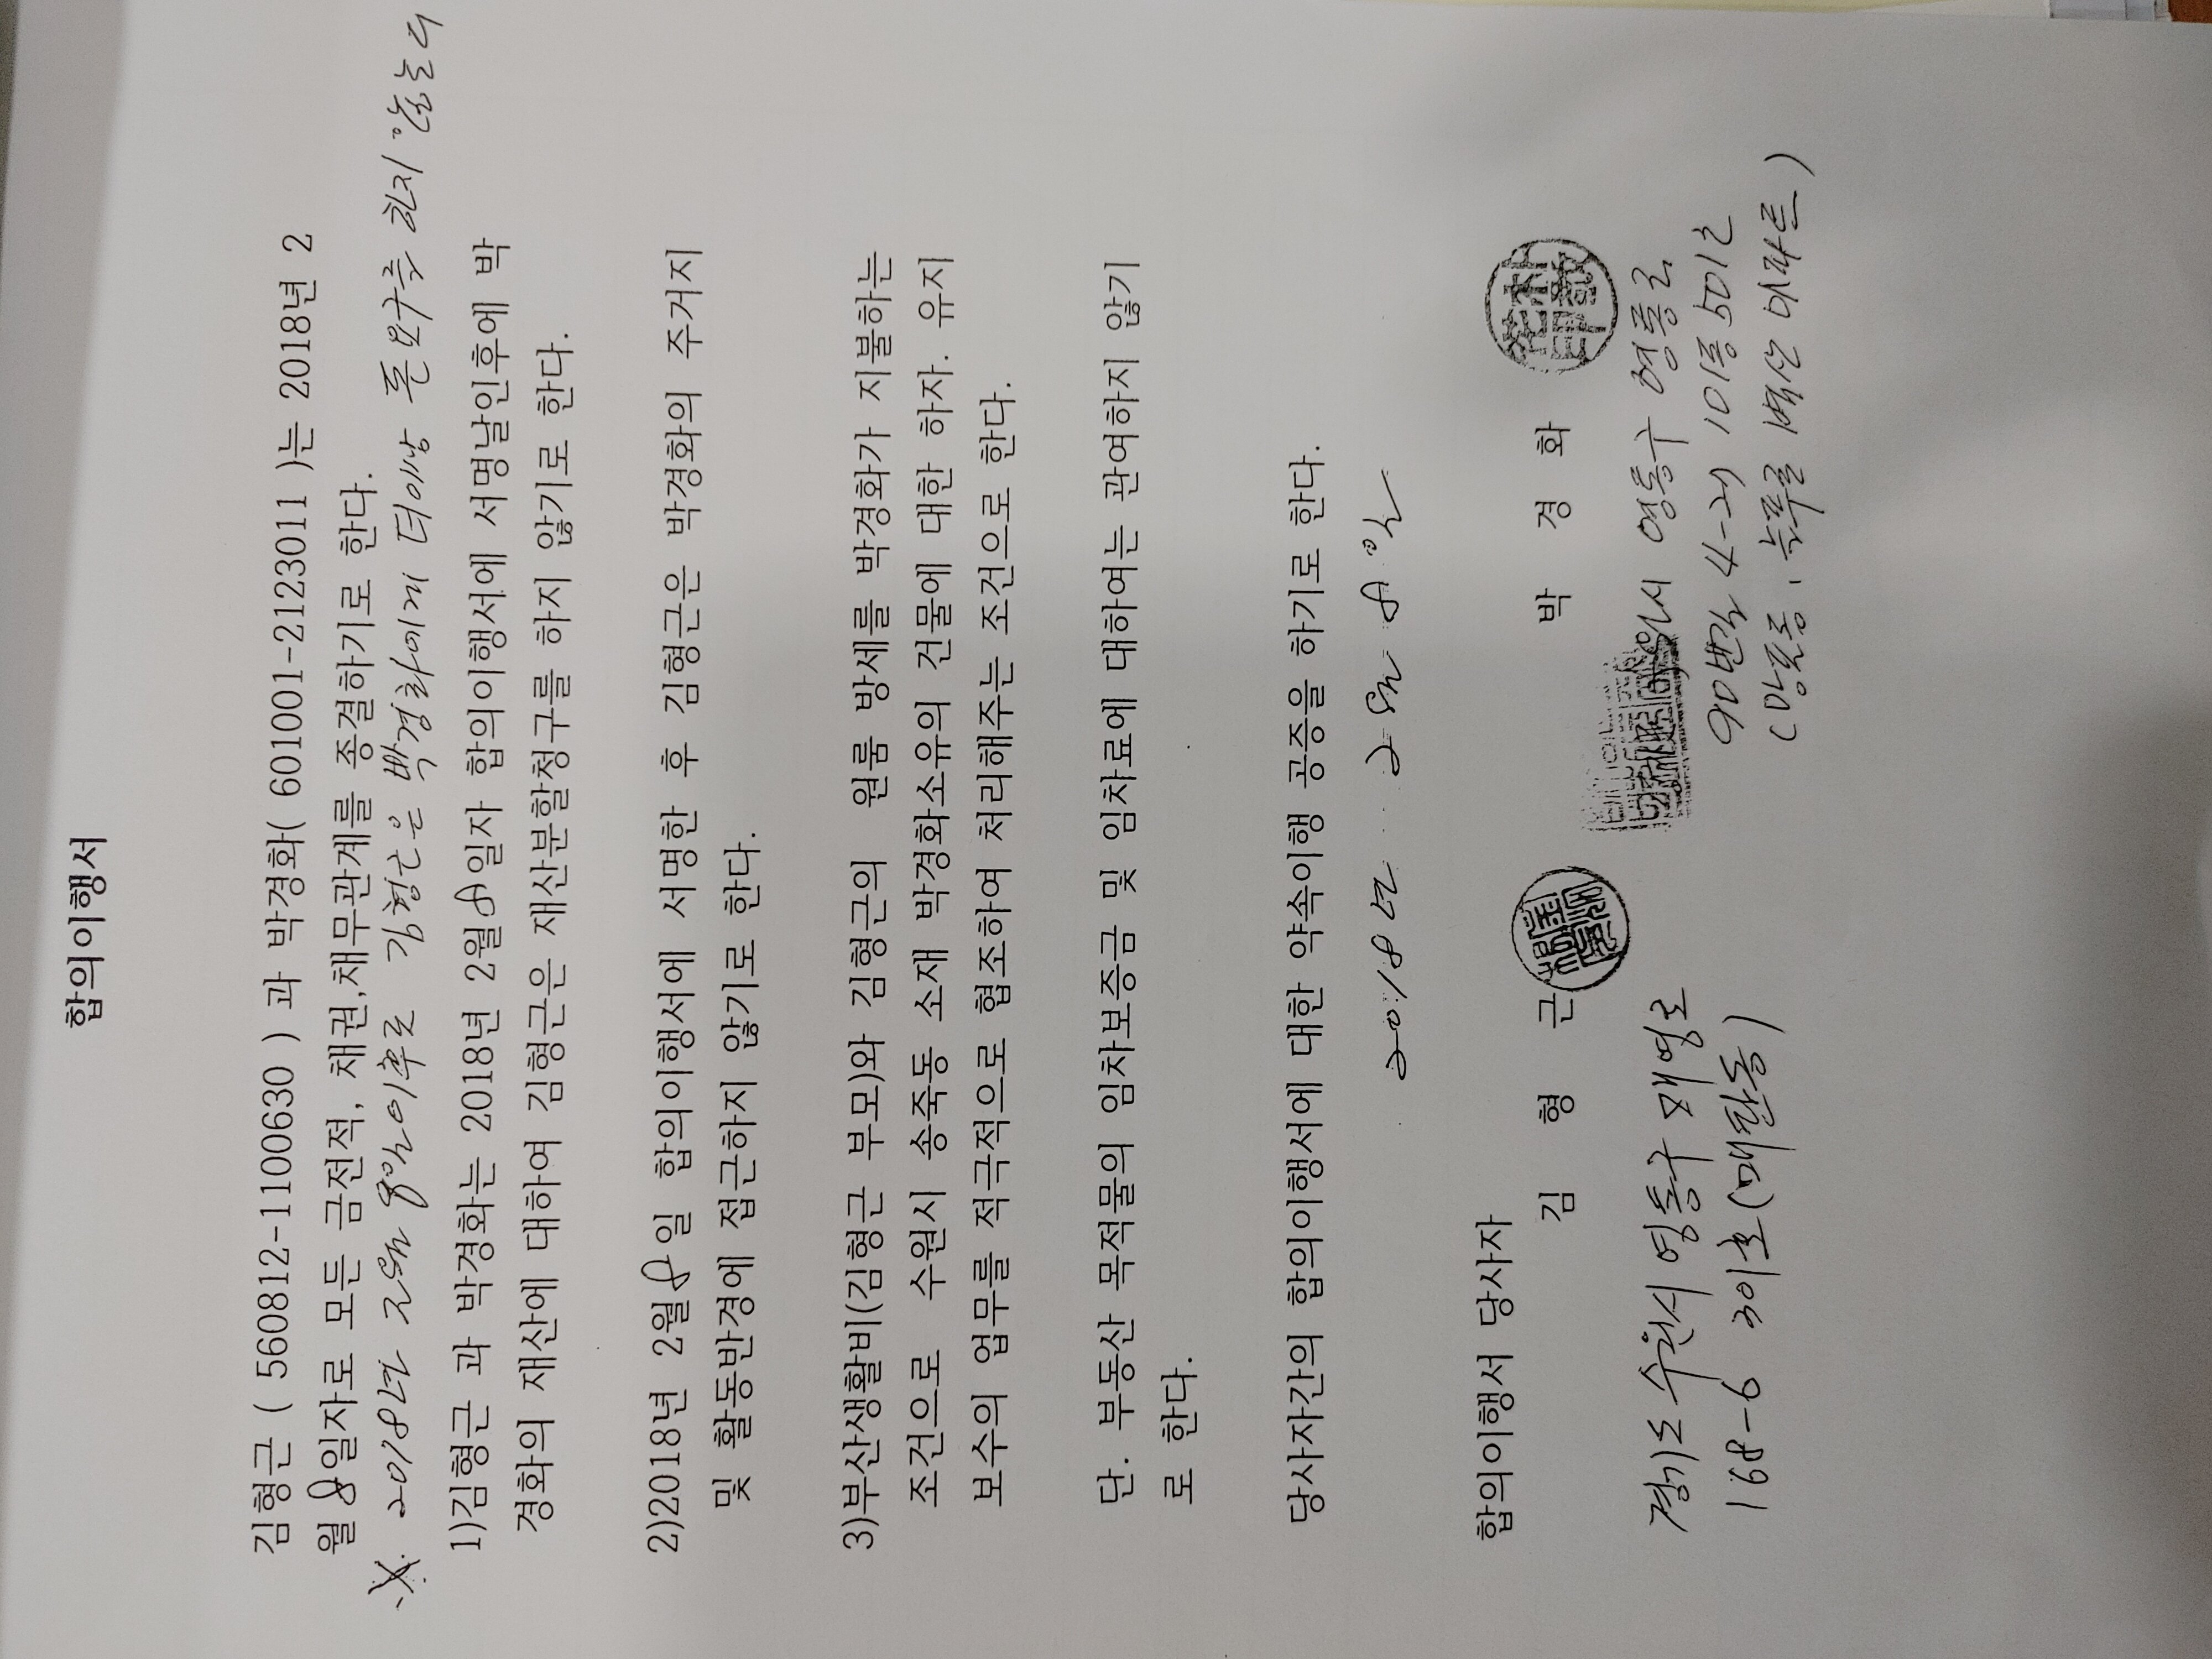 합의이행서
김형근 ( 560812-1100630 ) 과 박경화( 601001-2123011 )는 2018년 2
월 8일자로 모든 금전적, 채권,채무관계를 종결하기로 한다.
※ 2018년 2월 8일이후로 김형근은 박경화에게 더이상 돈요구를 하지 않는다
1)김형근 과 박경화는 2018년 2월8일자 합의이행서에 서명날인후에 박
경화의 재산에 대하여 김형근은 재산분할청구를 하지 않기로 한다.
2)2018년 2월8일 합의이행서에 서명한 후 김형근은 박경화의 주거지
및 활동반경에 접근하지 않기로 한다.
3)부산생활비(김형근 부모)와 김형근의 원룸 방세를 박경화가 지불하는
조건으로 수원시 송죽동 소재 박경화소유의 건물에 대한 하자. 유지
보수의 업무를 적극적으로 협조하여 처리해주는 조건으로 한다.
단. 부동산 목적물의 임차보증금 및 임차료에 대하여는 관여하지 않기
로 한다.
당사자간의 합의이행서에 대한 약속이행 공증을 하기로 한다.
2018년 2월 8일
합의이행서 당사자
김 형 근 박 경 화
경기도 수원시 영통구 매영로
168-6 301호 (매탄동)
영통구 영통로
90번길 4-27 101동 501호
(망포동, 늘푸른 벽산 아파트)